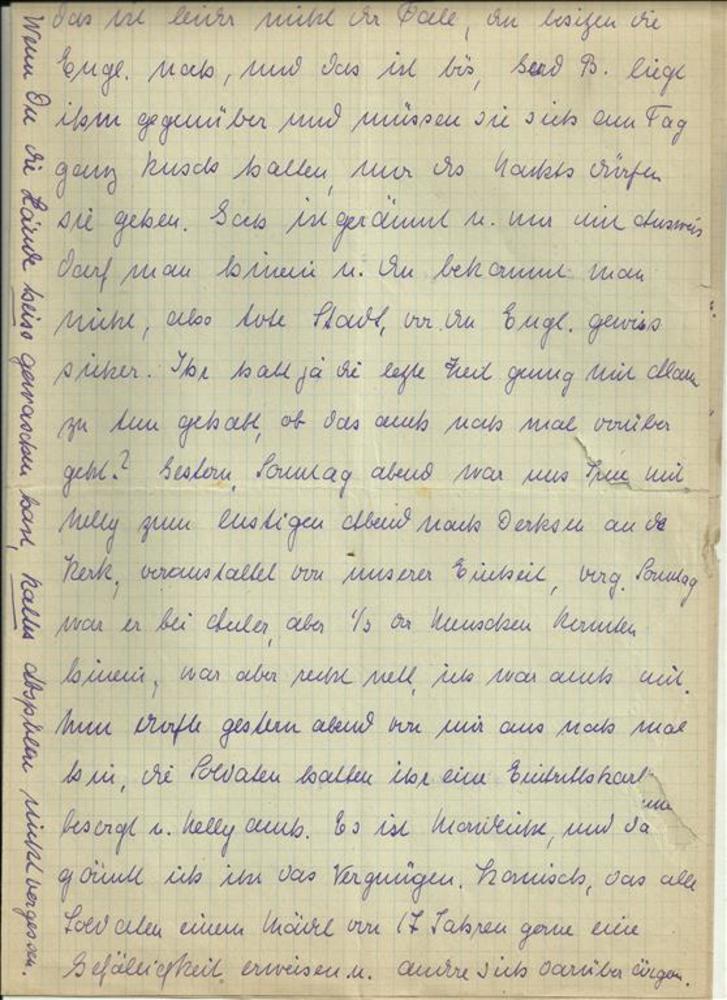 das ist leider nicht der Fall, den besitzen die
Engl. noch, und das ist bös, Bernd B. liegt
ihm gegenüber und müssen sie sich am Tag
ganz kusch halten, nur des Nachts dürfen
sie gehen. ist geräumt u. nur mit Ausweis
darf man hinein u. den bekommt man
nicht, also tote Stadt, vor den Engl. gewiss
sicher. Ihr habt ja die letzte Zeit genug mit Alarm
zu tun gehabt, ob das auch noch mal vorüber
geht? Gestern, Sonntag abend war uns Trui mit
Nelly zum lustigen Abend nach Derksen an de
Kerk, veranstaltet von unserer Einheit, vorg. Sonntag
war er bei Auler, aber 1/3 der Menschen konnten
hinein, war aber recht nett, ich war auch mit.
Nun durfte gestern abend von mir aus noch mal
hin, die Soldaten hatten ihr eine Eintrittskart
besorgt u. Nelly auch. Es ist und da
gönnte ich ihr das Vergnügen. Komisch, das alle
Soldaten einem Mädel von 17 Jahren gerne eine
Gefälligkeit erweisen u. andre sich darüber ärgern.
Wenn Du die Hände heiss gewaschen hast, kaltes Abspülen nicht vergessen.